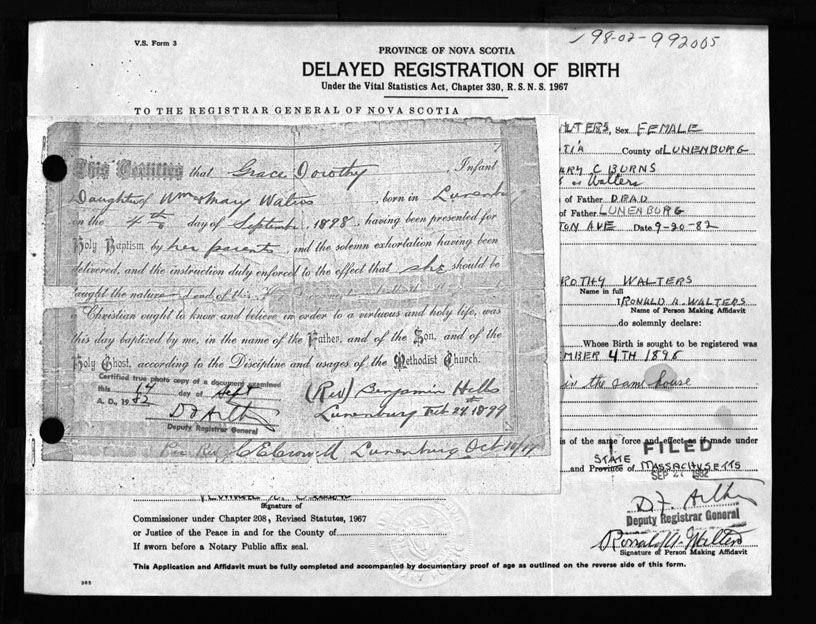 V.S. Form 3
198-02-992005
PROVINCE OF NOVA SCOTIA
DELAYED REGISTRATION OF BIRTH
Under the Vital Statistics Act, Chapter 330, R.S.N.S. 1967
TO THE REGISTRAR GENERAL OF NOVA SCOTIA
LTERS, Sex FEMALE
TIA County of LUNENBURG
ARY C BURNS
Walters
of Father DEAD
of Father LUNENBURG
TON AVE Date 9-20-82
ROTHY WALTERS
Name in full
RONALD A. WALTERS
Name of Person Making Affidavit
do solemnly declare:
Whose Birth is sought to be registered was
MBER 4TH 1898
in the same house
is of the same force and effect as if made under
FILED
STATE
and Province of MASSACHUSETTS
SEP 27 1982
Deputy Registrar General
Ronald A. Walters
Signature of Person Making Affidavit
This Certifies that Grace Dorothy, Infant
Daughter of Wm & Mary Walters born in
on the 4th day of September, 1898, having been presented for
Holy Baptism by her parents, and the solemn exhortation having been
delivered, and the instruction duly enforced to the effect that she should be
taught the nature and end of this
a Christian ought to know and believe in order to a virtuous and holy life, was
this day baptized by me, in the name of the Father, and of the Son, and of the
Holy Ghost, according to the Discipline and usages of the Methodist Church.
Certified true photo copy of a document examined
this 14 day of Sept
A.D., 1982
Deputy Registrar General
(Rev) Benjamin Hills
Lunenburg 1899
Lunenburg Oct
Signature of
Commissioner under Chapter 208, Revised Statutes, 1967
or Justice of the Peace in and for the County of
If sworn before a Notary Public affix seal.
This Application and Affidavit must be fully completed and accompanied by documentary proof of age as outlined on the reverse side of this form.